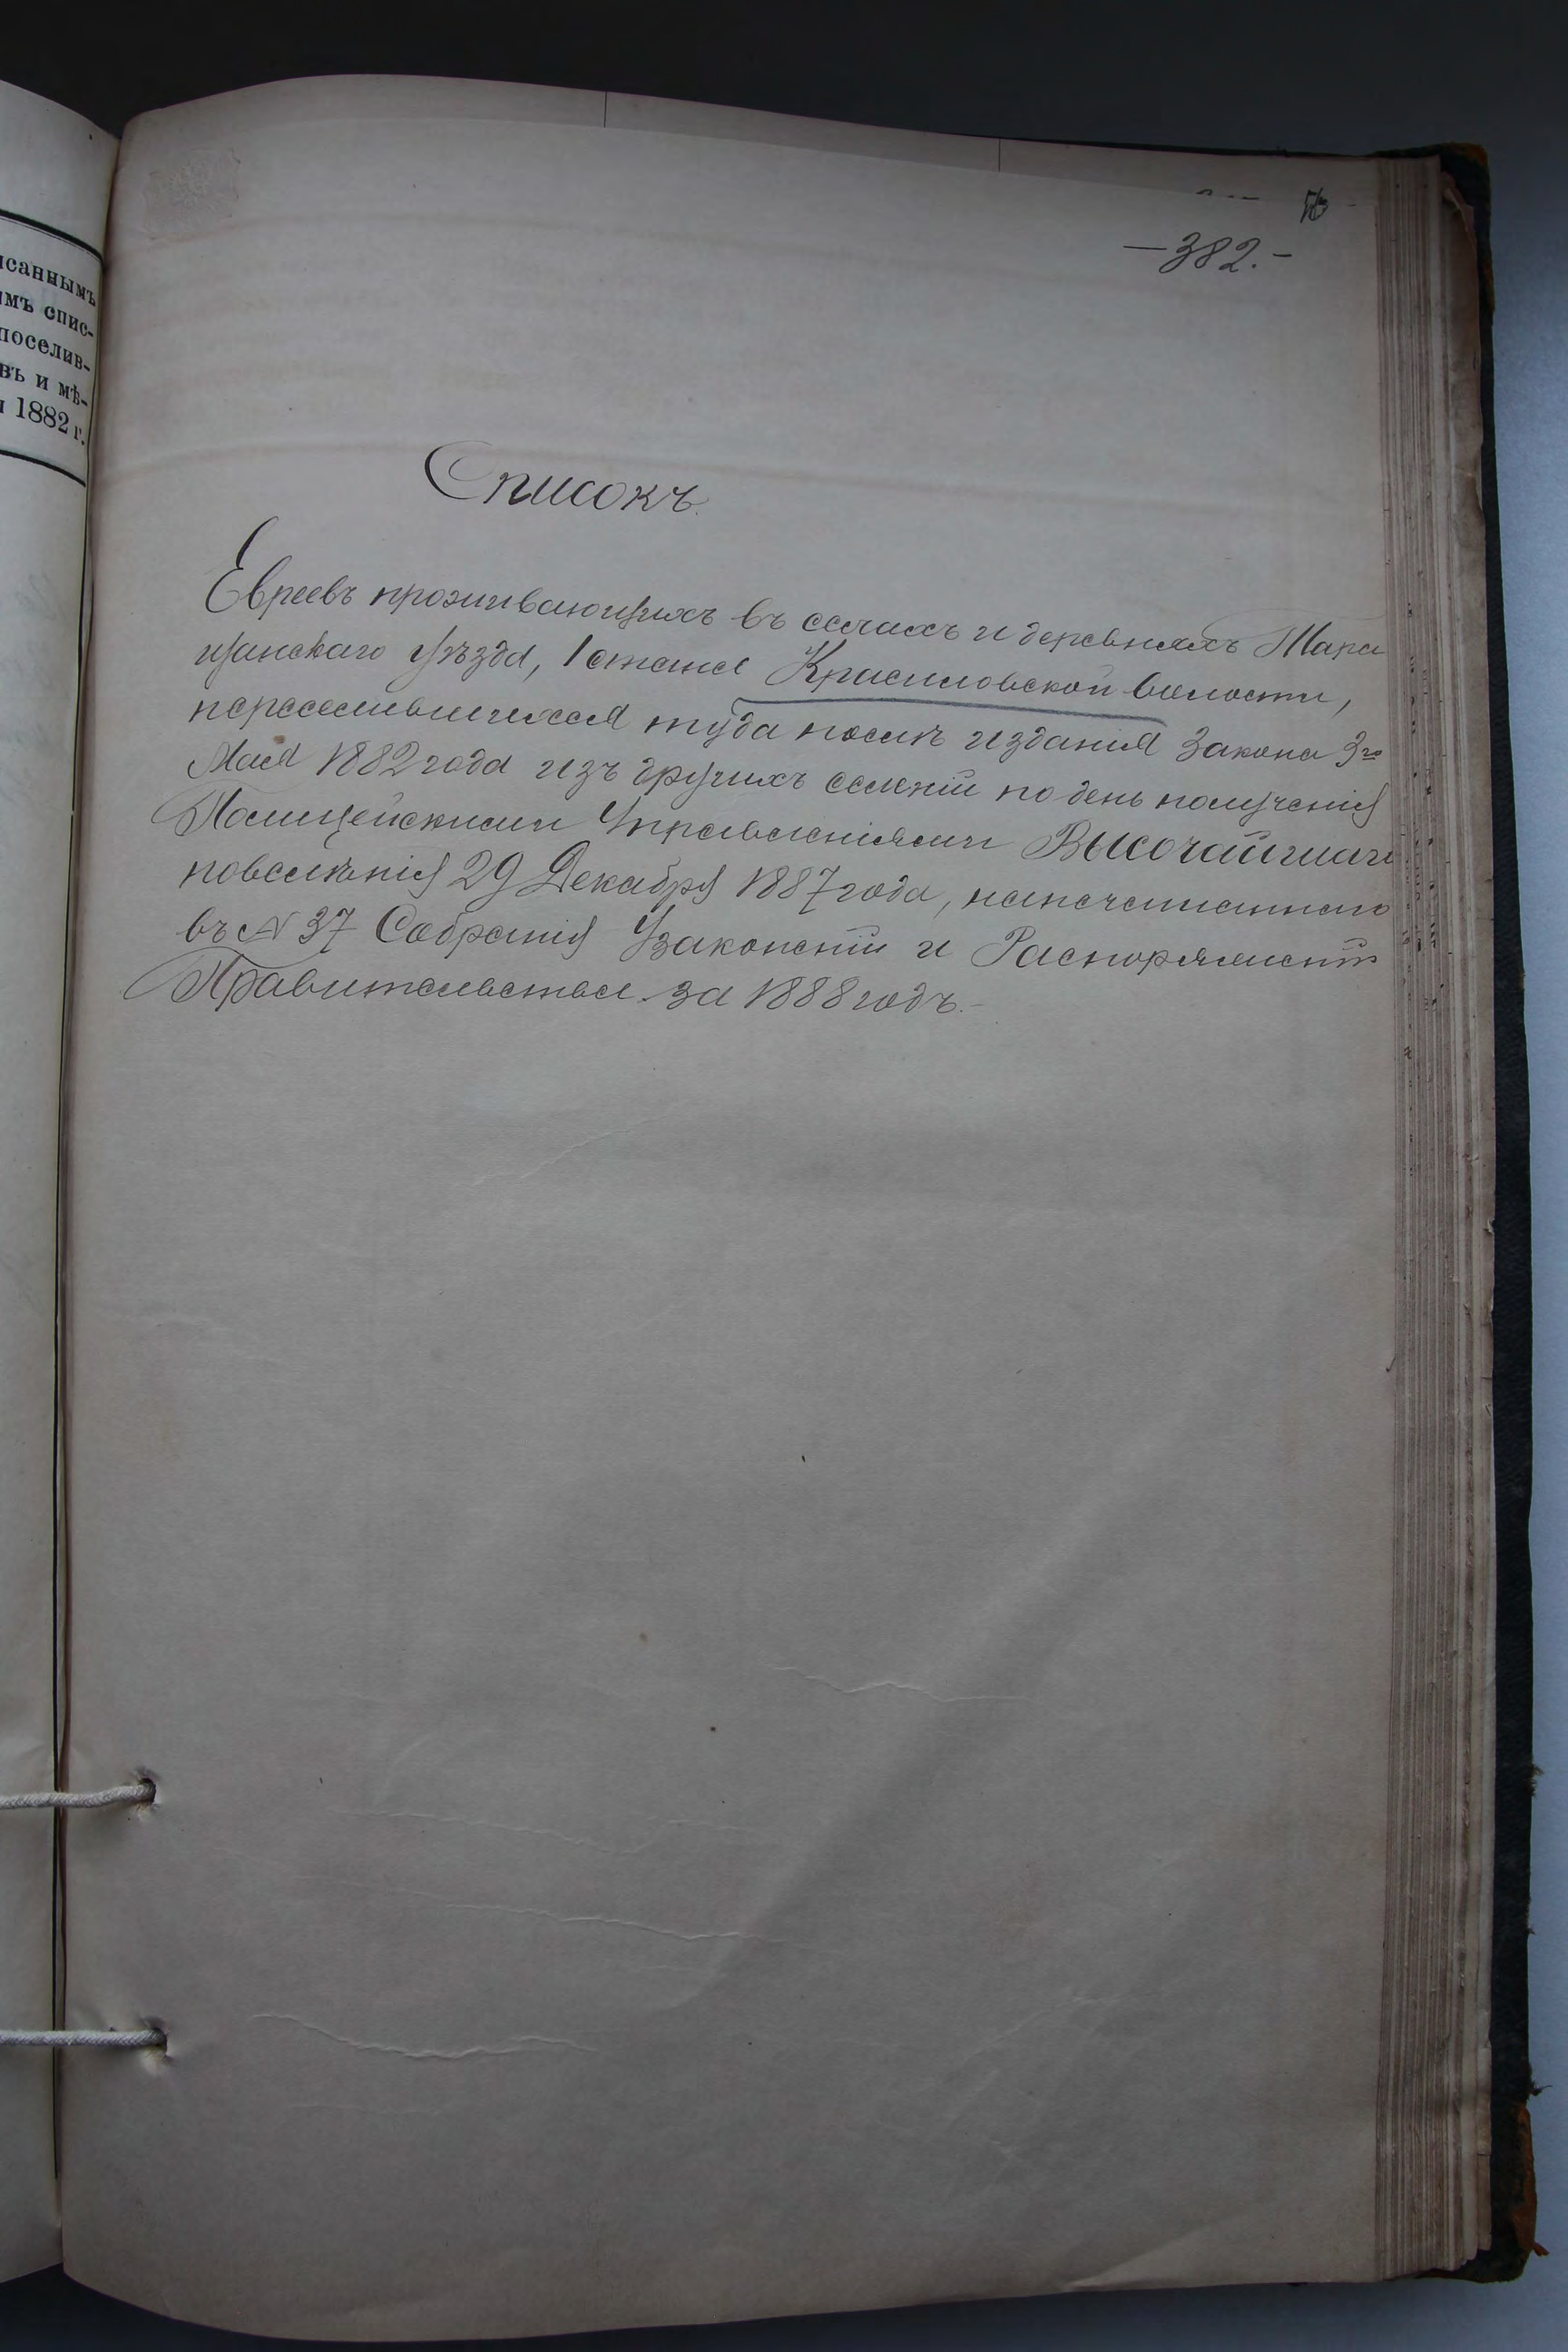 исаннымъ
имъ спис-
поселив-
въ и мѣ-
я 1882 г.
—382.—
Списокъ.
Евреевъ проживающихъ въ селахъ и деревняхъ Тара
щанскаго уѣзда, 1 стана Красиловской волости,
переселившихся туда послѣ изданія Закона 3го
Мая 1882 года изъ другихъ селеній по день полученія
Полицейскими Управленіями Высочайшаго
повелѣнія 29 Декабря 1887 года, напечатаннаго
въ N 37 Собранія Узаконеній и Распоряженій
Правительства за 1888 годъ.-